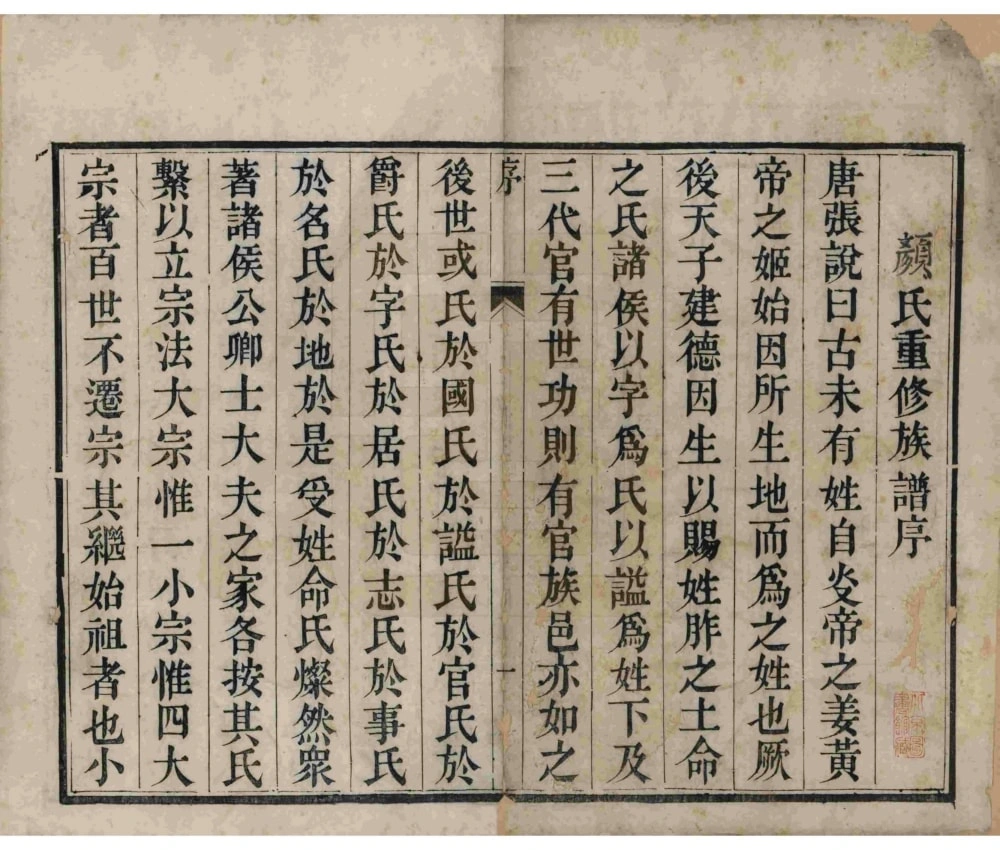 顏氏重修族譜序
唐張說曰古未有姓自炎帝之姜黃
帝之姬始因所生地而爲之姓也厥
後天子建德因生以賜姓胙之土命
之氏諸侯以字爲氏以諡爲姓下及
三代官有世功則有官族邑亦如之
序
一
後世或氏於國氏於諡氏於官氏於
爵氏於字氏於居氏於志氏於事氏
於名氏於地於是受姓命氏燦然眾
著諸侯公卿士大夫之家各按其氏
繫以立宗法大宗惟一小宗惟四大
宗者百世不遷宗其繼始祖者也小